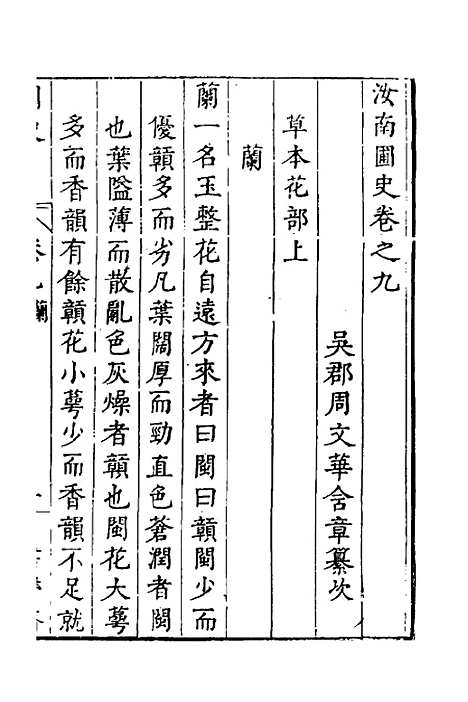 汝南圃史卷之九
吳郡周文華含章纂次
草本花部上
蘭
蘭一名玉整花自遠方來者曰閩曰贑閩少而
優贑多而劣凡葉闊厚而勁直色蒼潤者閩
也葉隘薄而散亂色灰燥者贑也閩花大蕚
多而香韻有餘贑花小蕚少而香韻不足就
卷九 蘭